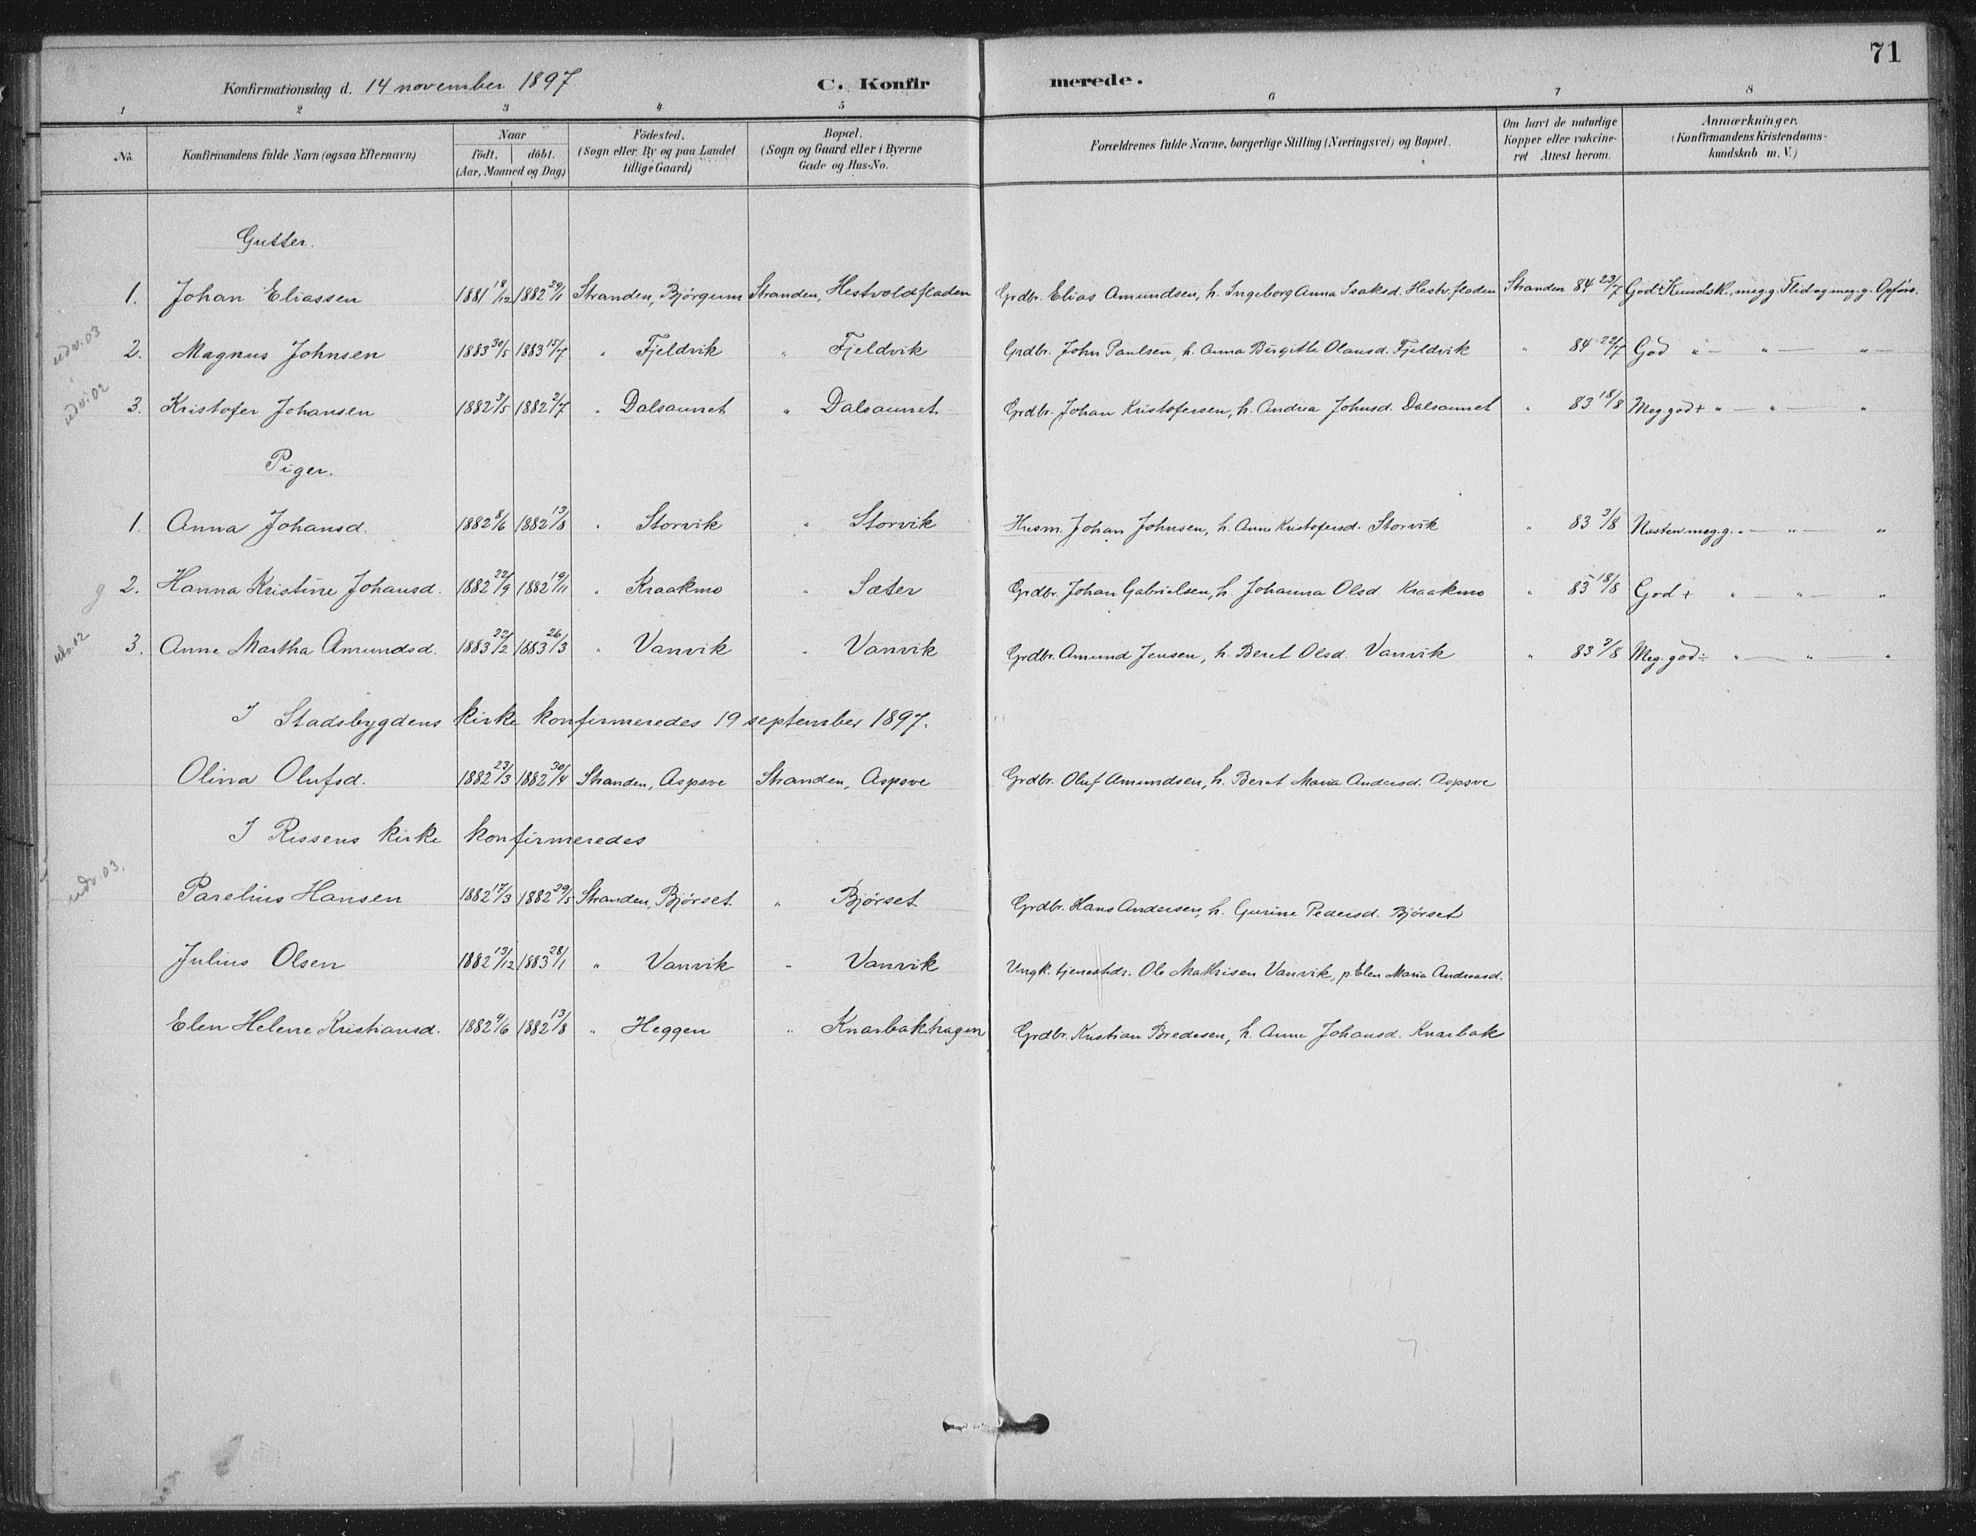 71
Konfirmationsdag d. 14 november 1897 C. Konfirmerede.
1 2 3 4 5 6 7 8
No. Konfirmandens fulde Navn (ogsaa Efternavn) Naar födt. döbt. (Aar, Maaned og Dag) Födested. (Sogn eller By og paa Landet tillige Gaard) Bopæl. (Sogn og Gaard eller i Byerne Gade og Hus-No. Forældrenes fulde Navne, borgerlige Stilling (Næringsvei) og Bopæl. Om havt de naturlige Kopper eller vakcineret Attest herom. Anmærkninger. (Konfirmandens Kristendomskundskab m. V.)
Gutter.
1. Johan Eliassen 1881 18/12 1882 29/1 Stranden, Bjørgum Stranden, Hestvoldfladen Grdbr. Elias Amundsen, h. Ingeborg Anna Isaksd. Hestv.fladen Stranden 84 23/7 God + Kundsk., meg.g. Flid og meg.g. Opførs.
udv. 03 2. Magnus Johnsen 1883 30/5 1883 15/7 " Fjeldvik " Fjeldvik Grdbr. John Paulsen, h. Anna Birgitte Olausd. Fjeldvik " 84 22/7 God " — " — " —
udv. 02 3. Kristofer Johansen 1882 31/5 1882 2/7 " Dalsaunet " Dalsaunet Grdbr. Johan Kristofersen, h. Andrea Johnsd. Dalsaunet " 83 18/8 Meg god + " — " — "
Piger.
1. Anna Johansd. 1882 8/6 1882 13/8 " Storvik " Storvik Husm. Johan Johnsen, h. Anne Kristofersd. Storvik " 83 3/8 Næsten meg.g. " — " — "
g 2. Hanna Kristine Johansd. 1882 22/9 1882 19/11 " Kraakmo " Sæter Grdbr. Johan Gabrielsen, h. Johanna Olsd. Kraakmo " 83 18/8 God + " — " — "
udv. 02 3. Anne Martha Amundsd. 1883 22/2 1883 26/3 " Vanvik " Vanvik Grdbr. Amund Jensen, h. Beret Olsd. Vanvik " 83 3/8 Meg. god ÷ " — " — "
I Stadsbygdens kirke konfirmeredes 19 september 1897.
Olina Olufsd. 1882 23/3 1882 30/4 Stranden, Aspsve Stranden, Aspsve Grdbr. Oluf Amundsen, h. Beret Maria Andersd. Aspsve
I Rissens kirke konfirmeredes
udv. 03. Parelius Hansen 1882 17/3 1882 29/5 Stranden, Bjørset " Bjørset Grdbr. Hans Andersen, h. Gurine Pedersd. Bjørset
Julius Olsen 1882 13/12 1883 28/1 " Vanvik " Vanvik Ungk. tjenestdr. Ole Mathisen Vanvik, p Elen Maria Andreasd.
Elen Helene Kristiansd. 1882 4/6 1882 13/8 " Heggen " Knarbakhagen Grdbr. Kristian Bredesen, h. Anne Johansd. Knarbak